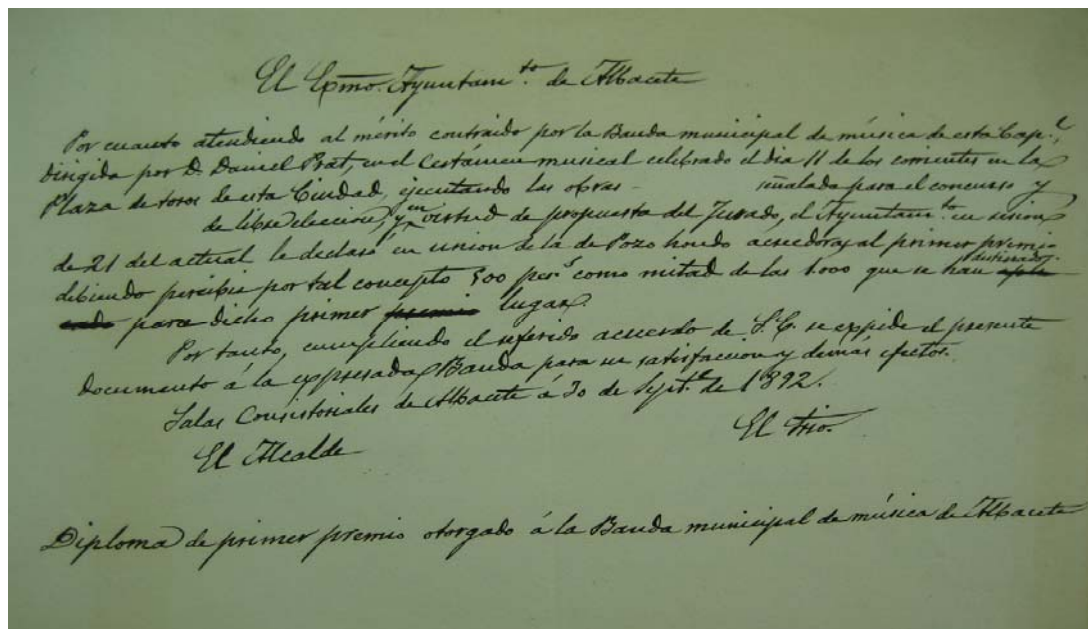 El Exmo. Ayuntam.to de Albacete
Por cuanto atendiendo al mérito contraido por la Banda municipal de música de esta Cap.l
dirigida por D. Daniel Prat, en el Certámen musical celebrado el dia 11 de los corrientes en la
Plaza de toros de esta Ciudad, ejecutando las obras - señalada para el concurso y
de libre eleccion, y en virtud de propuesta del Jurado, el Ayuntam.to en sesion
de 21 del actual le declaró en union de la de Pozo hondo acreedoras al primer premio
debiendo percibir por tal concepto 500 pes.s como mitad de las 1.000 que se han destinado
para dicho primer premio lugar.
Por tanto, cumpliendo el referido acuerdo de S.E. se expide el presente
documento á la expresada Banda para su satisfaccion y demás efectos.
Salas Consistoriales de Albacete á 30 de Sept.e de 1892.
El Alcalde El Srio.
Diploma de primer premio otorgado á la Banda municipal de música de Albacete